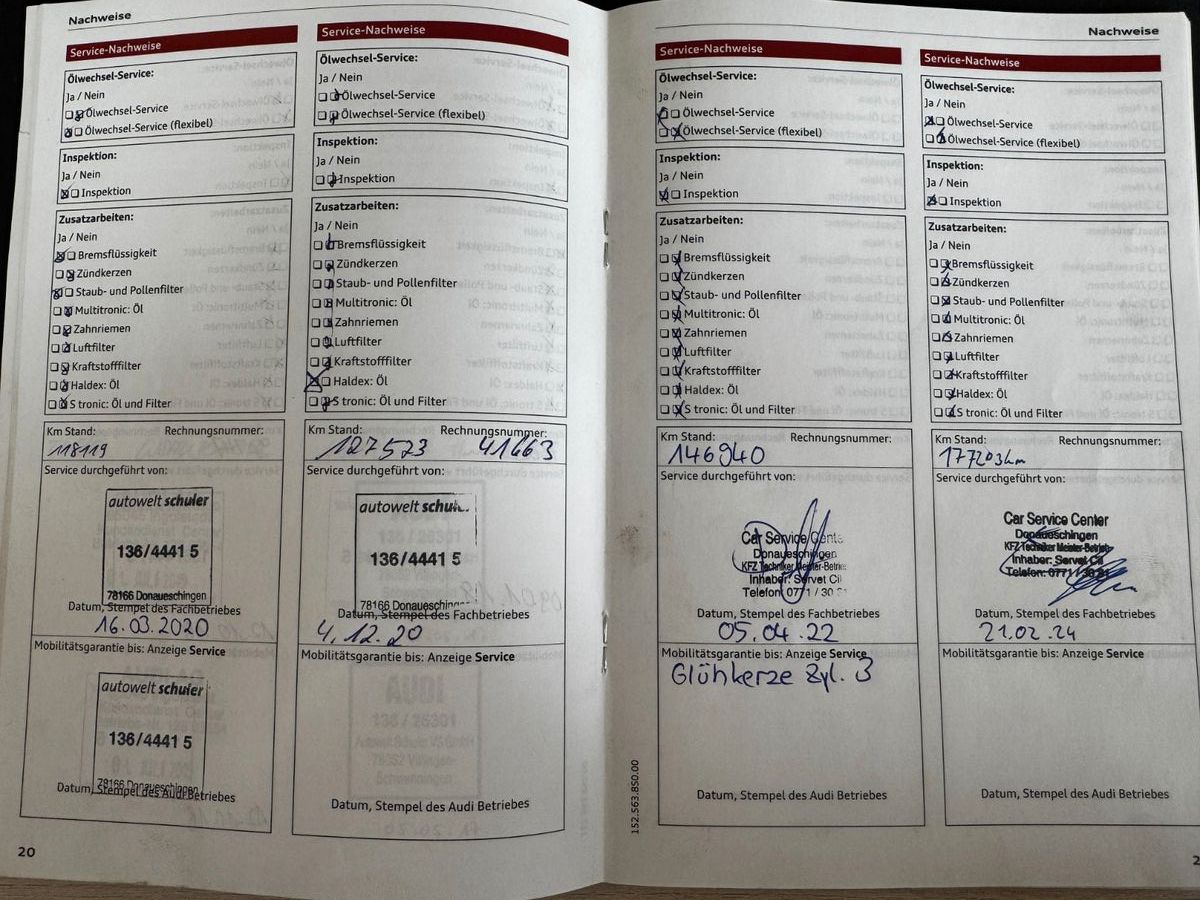 Nachweise
Service-Nachweise
Ölwechsel-Service:
Ja / Nein
Ölwechsel-Service
Ölwechsel-Service (flexibel)
Inspektion:
Ja / Nein
Inspektion
Zusatzarbeiten:
Ja / Nein
Bremsflüssigkeit
Zündkerzen
Staub- und Pollenfilter
Multitronic: Öl
Zahnriemen
Luftfilter
Kraftstofffilter
Haldex: Öl
S tronic: Öl und Filter
Km Stand: Rechnungsnummer:
118119
Service durchgeführt von:
autowelt schuler
136/4441 5
78166 Donaueschingen
Datum, Stempel des Fachbetriebes
16.03.2020
Mobilitätsgarantie bis: Anzeige Service
autowelt schuler
136/4441 5
78166 Donaueschingen
Datum, Stempel des Audi Betriebes
20
Service-Nachweise
Ölwechsel-Service:
Ja / Nein
Ölwechsel-Service
Ölwechsel-Service (flexibel)
Inspektion:
Ja / Nein
Inspektion
Zusatzarbeiten:
Ja / Nein
Bremsflüssigkeit
Zündkerzen
Staub- und Pollenfilter
Multitronic: Öl
Zahnriemen
Luftfilter
Kraftstofffilter
Haldex: Öl
S tronic: Öl und Filter
Km Stand: Rechnungsnummer:
127573 41663
Service durchgeführt von:
autowelt schul
136/4441 5
78166 Donaueschingen
Datum, Stempel des Fachbetriebes
4.12.20
Mobilitätsgarantie bis: Anzeige Service
Datum, Stempel des Audi Betriebes
Nachweise
Service-Nachweise
Ölwechsel-Service:
Ja / Nein
Ölwechsel-Service
Ölwechsel-Service (flexibel)
Inspektion:
Ja / Nein
Inspektion
Zusatzarbeiten:
Ja / Nein
Bremsflüssigkeit
Zündkerzen
Staub- und Pollenfilter
Multitronic: Öl
Zahnriemen
Luftfilter
Kraftstofffilter
Haldex: Öl
S tronic: Öl und Filter
Km Stand: Rechnungsnummer:
146940
Service durchgeführt von:
Car Service Cente
Donaueschingen
KFZ Techniker Meister-Betrieb
Inhaber: Servet Cil
Telefon: 0771 / 30
Datum, Stempel des Fachbetriebes
05.04.22
Mobilitätsgarantie bis: Anzeige Service
Glühkerze Zyl. 3
Datum, Stempel des Audi Betriebes
152.563.850.00
Service-Nachweise
Ölwechsel-Service:
Ja / Nein
Ölwechsel-Service
Ölwechsel-Service (flexibel)
Inspektion:
Ja / Nein
Inspektion
Zusatzarbeiten:
Ja / Nein
Bremsflüssigkeit
Zündkerzen
Staub- und Pollenfilter
Multitronic: Öl
Zahnriemen
Luftfilter
Kraftstofffilter
Haldex: Öl
S tronic: Öl und Filter
Km Stand: Rechnungsnummer:
177203km
Service durchgeführt von:
Car Service Center
Donaueschingen
KFZ Techniker Meister-Betrieb
Inhaber: Servet Cil
Telefon: 0771 / 30
Datum, Stempel des Fachbetriebes
21.02.24
Mobilitätsgarantie bis: Anzeige Service
Datum, Stempel des Audi Betriebes
2